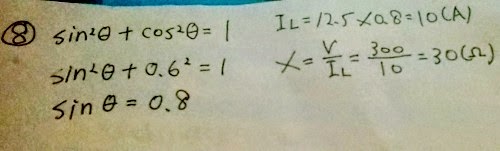 ⑧ sin²θ + cos²θ = 1
sin²θ + 0.6² = 1
sin θ = 0.8
I_L = 12.5 × 0.8 = 10 (A)
X = V/I_L = 300/10 = 30 (Ω)